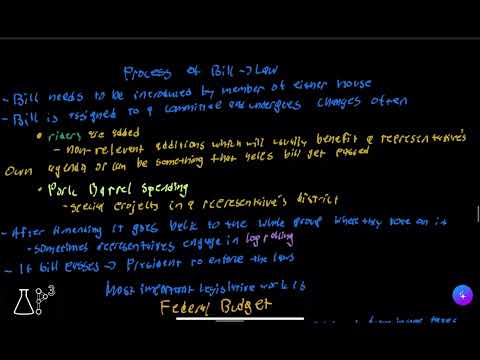 Process of Bill → Law
- Bill needs to be introduced by member of either house
- Bill is assigned to a committee and undergoes changes often
• riders are added
- non-relevant additions which will usually benefit a representative's
own agenda or can be something that helps bill get passed
• Pork Barrel Spending
- special projects in a representative's district
- After Amending it goes back to the whole group where they vote on it
- sometimes representatives engage in logrolling
- If bill passes → President to enforce the laws
Most important legislative work is
Federal Budget
3